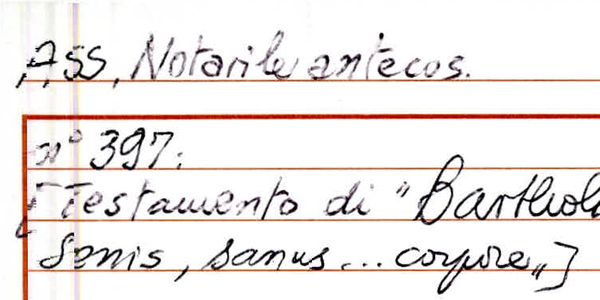 ASS, Notarile antecos.
n° 397:
[Testamento di "Barthol
Senis, sanus... corpore"]